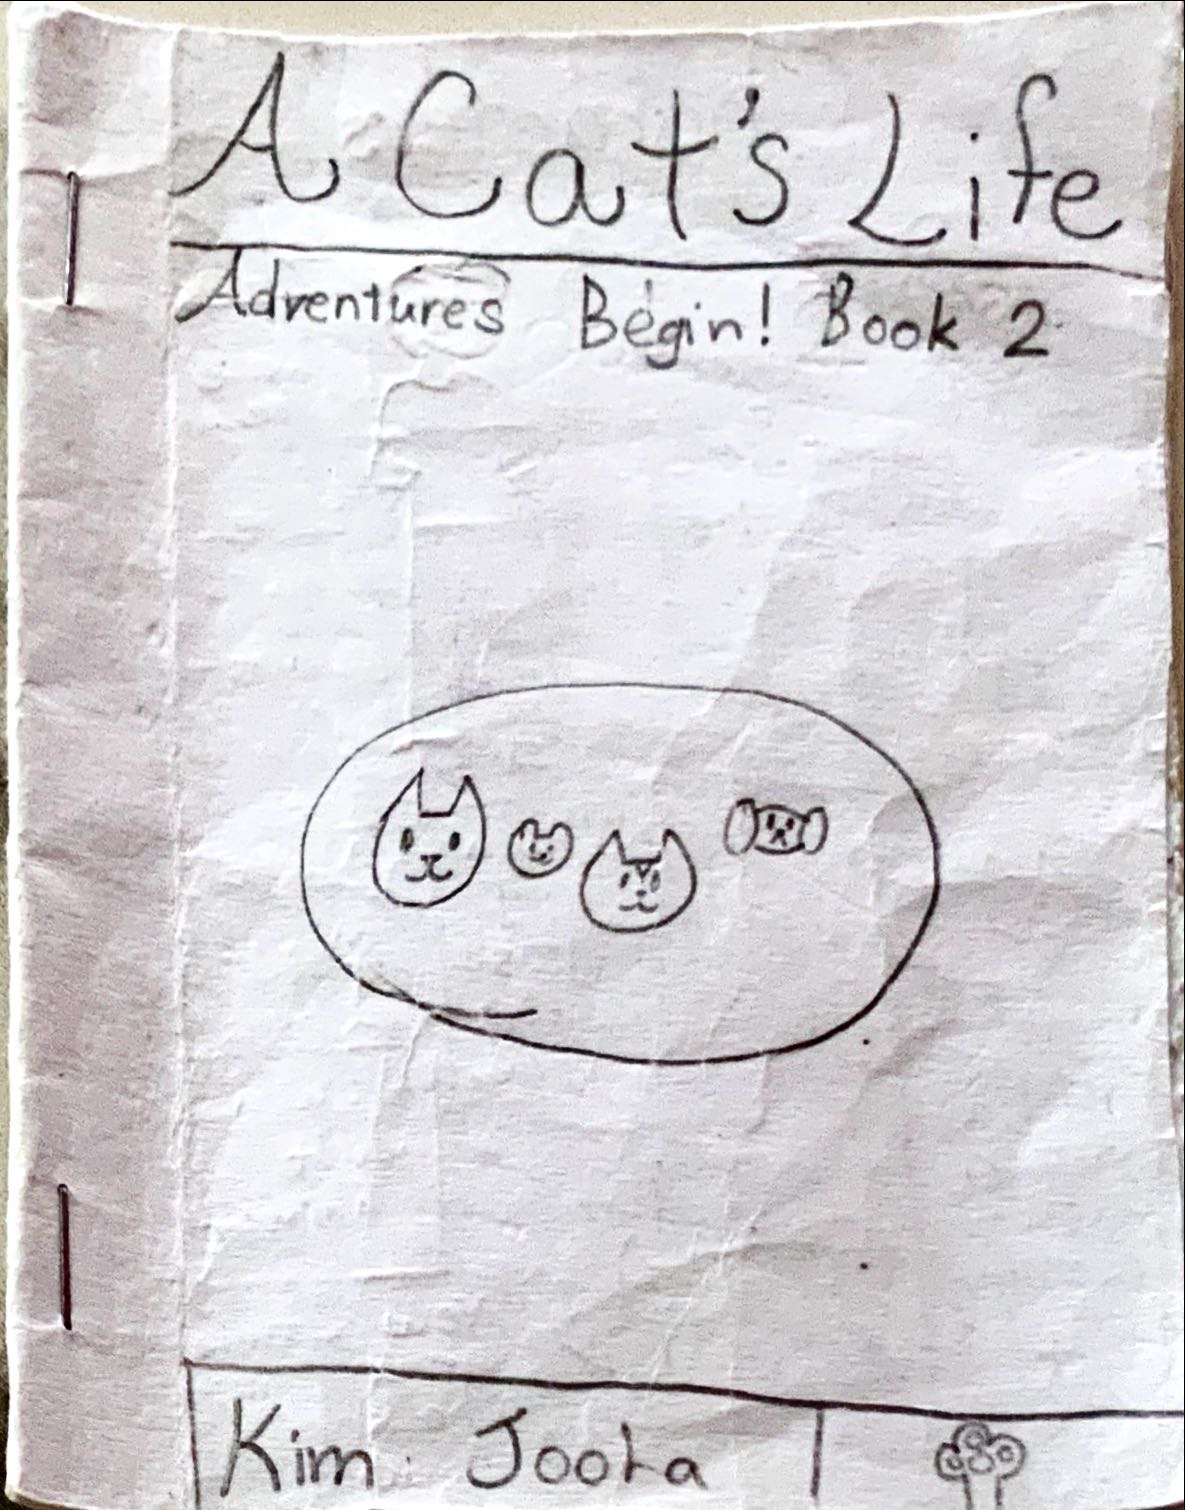 A Cat's Life
Adventures Begin! Book 2
Kim Jooha